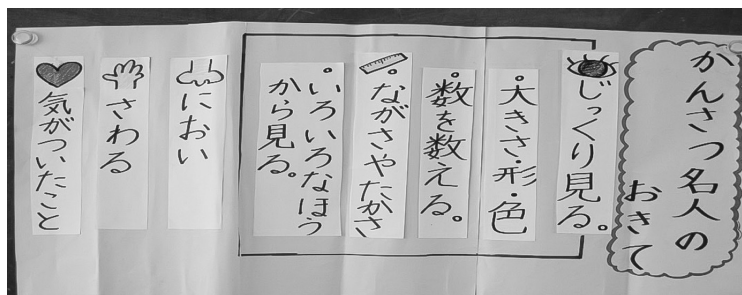 かんさつ名人の
おきて
じっくり見る。
・大きさ・形・色
・数を数える。
・ながさやたかさ
・いろいろなほう
から見る。
におい
さわる
気がついたこと